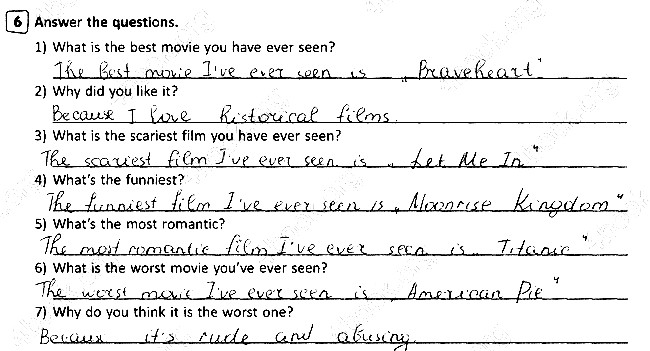 6 Answer the questions.
1) What is the best movie you have ever seen?
The Best movie I've ever seen is „Braveheart"
2) Why did you like it?
Because I love historical films.
3) What is the scariest film you have ever seen?
The scariest film I've ever seen is „Let Me In"
4) What's the funniest?
The funniest film I've ever seen is „Moonrise Kingdom"
5) What's the most romantic?
The most romantic film I've ever seen is „Titanic"
6) What is the worst movie you've ever seen?
The worst movie I've ever seen is „American Pie"
7) Why do you think it is the worst one?
Because it's rude and abusing.